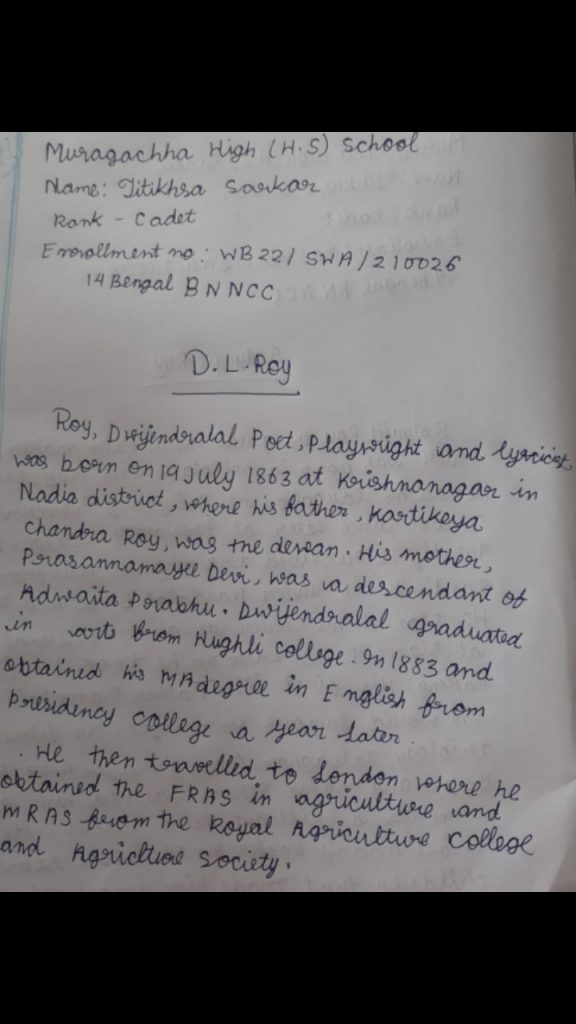 Muragachha High (H.S) School
Name: Titikhsa Sarkar
Rank - Cadet
Enrollment no: WB22/ SWA/210026
14 Bengal BN NCC
D.L. Roy
Roy, Dwijendralal Poet, Playwright and lyricist,
was born on 19 July 1863 at Krishnanagar in
Nadia district, where his father, Kartikeya
Chandra Roy, was the dewan. His mother,
Prasannamayee Devi, was a descendant of
Adwaita Prabhu. Dwijendralal graduated
in arts from Hughli College. In 1883 and
obtained his MA degree in English from
Presidency College a year later.
. He then travelled to London where he
obtained the FRAS in agriculture and
MRAS from the Royal Agriculture College
and Agriclture Society.